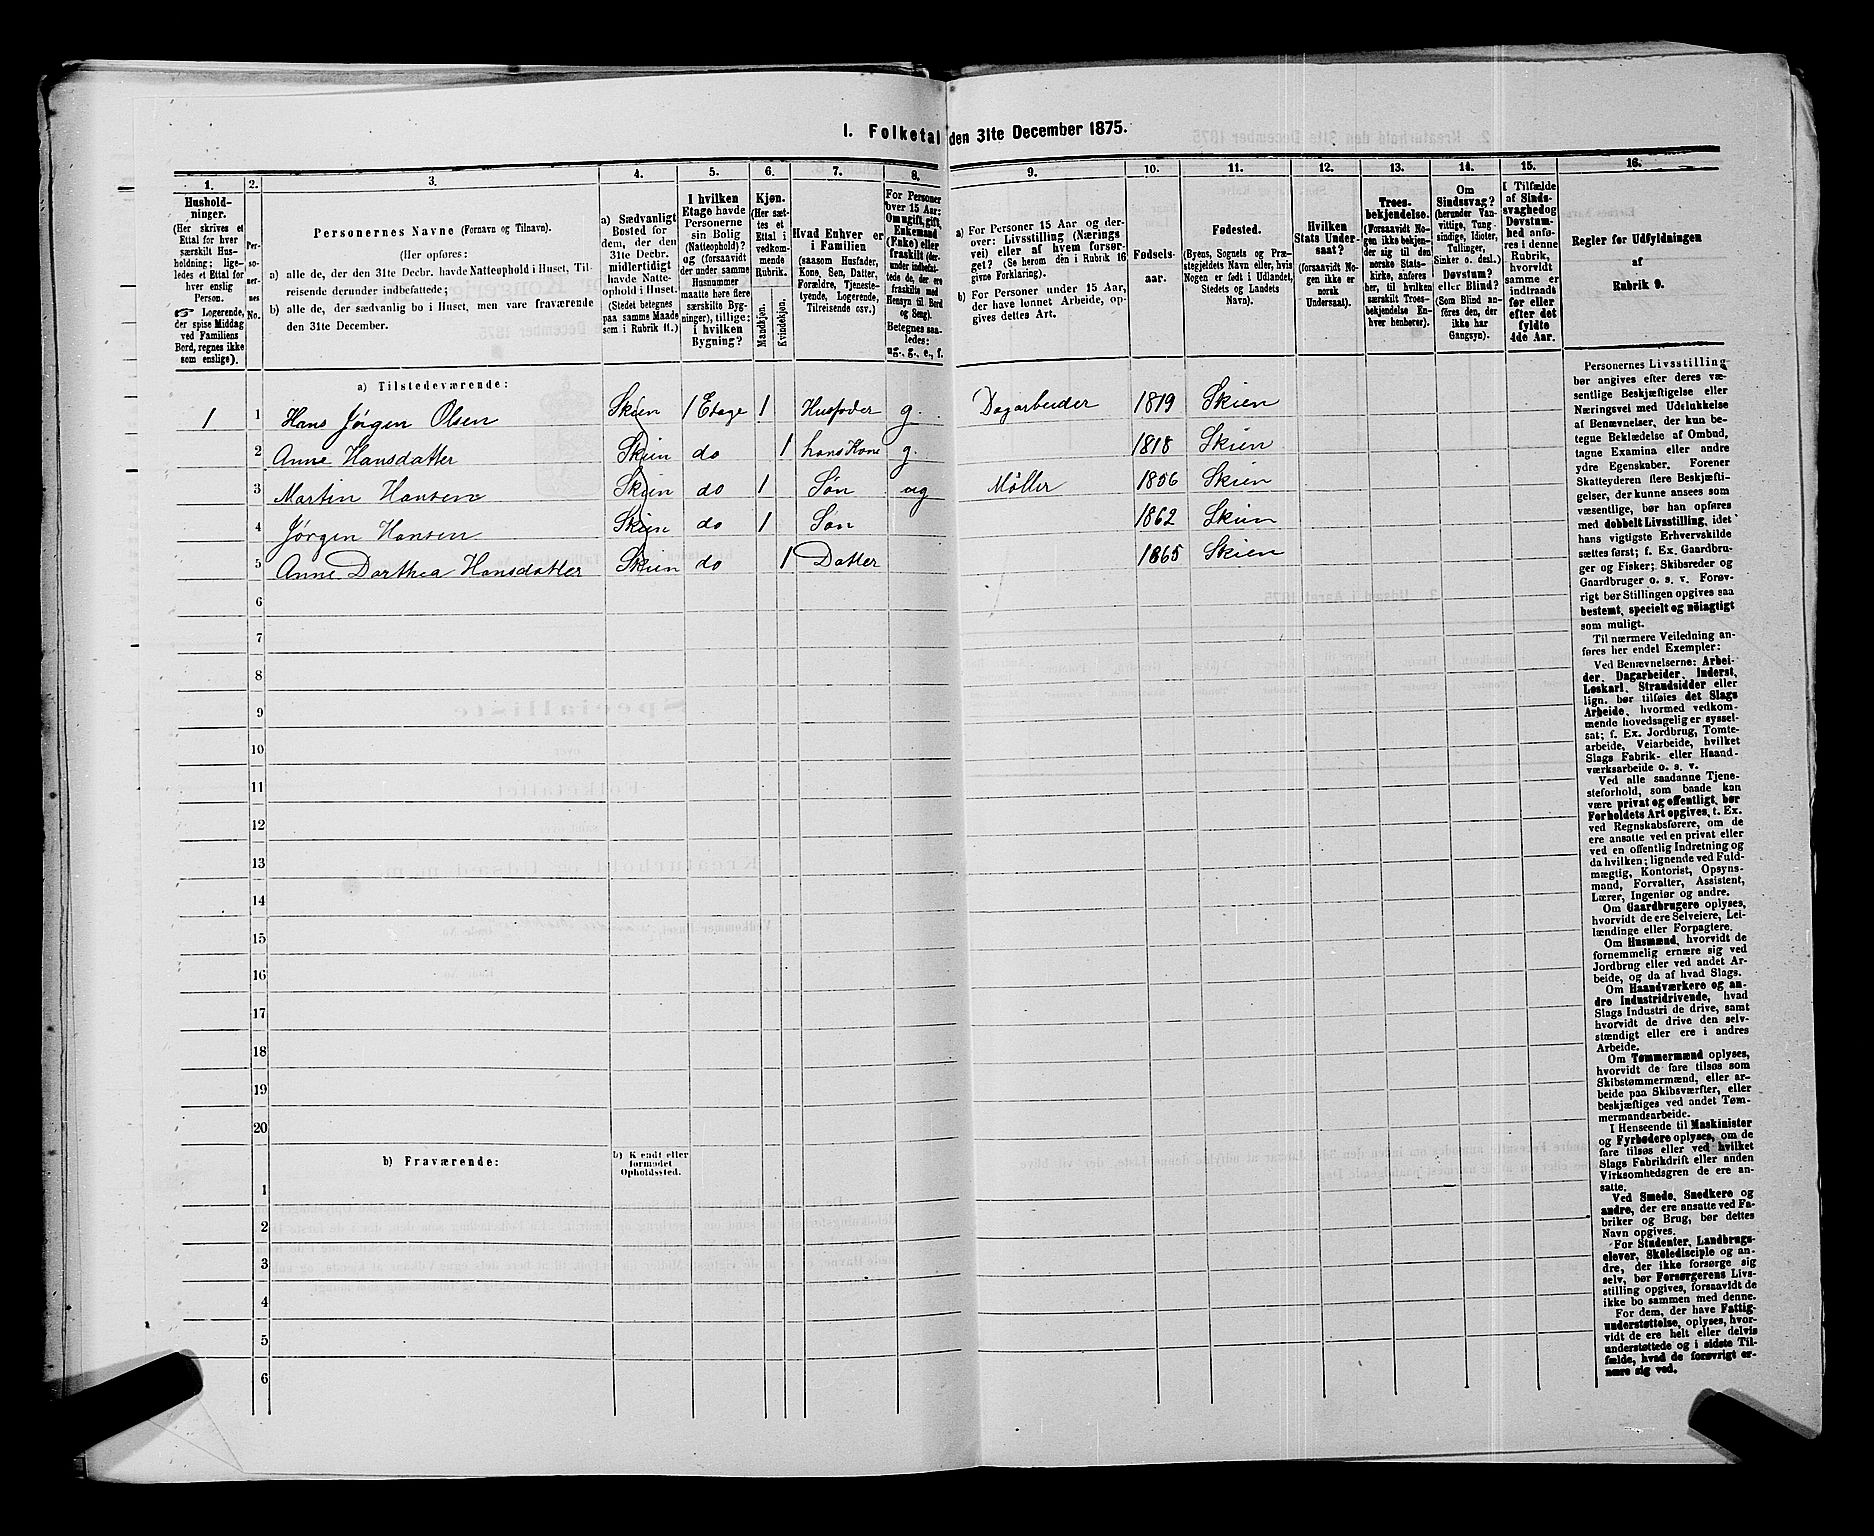 I. Folketal den 31te December 1875.
1. 2. 3. 4. 5. 6. 7. 8. 9. 10. 11. 12. 13. 14. 15. 16.
Hushold-
ninger.
(Her skrives et
Ettal for hver
særskilt Hus-
holdning; lige-
ledes et Ettal for
hver enslig
Person.
☞ Logerende,
der spise Middag
ved Familiens
Bord, regnes ikke
som enslige).
Per-
so-
ner-
nes
No.
Personernes Navne (Fornavn og Tilnavn).
(Her opføres:
a) alle de, der den 31te Decbr. havde Natteophold i Huset, Til-
reisende derunder indbefattede;
b) alle de, der sædvanlig bo i Huset, men vare fraværende
den 31te December.
a) Sædvanligt
Bosted for
dem, der den
31te Decbr.
midlertidigt
havde Natte-
ophold i Huset.
(Stedet betegnes
paa samme Maade
som i Rubrik 11.)
I hvilken
Etage havde
Personerne
sin Bolig
(Natteophold)?
og (forsaavidt
der under samme
Husnummer
maatte høre flere
særskilte Byg-
ninger), tillige:
i hvilken
Bygning?
Kjøn.
(Her sæt-
tes et
Ettal i
vedkom-
mende
Rubrik.
Mandkjøn.
Kvindekjøn.
Hvad Enhver er
i Familien
(saasom Husfader,
Kone, Søn, Datter,
Forældre, Tjeneste-
tyende, Logerende,
Tilreisende osv.)
For Personer
over 15 Aar:
Om ugift, gift,
Enkemand
(Enke) eller
fraskilt (der-
under indbefat-
tede de, der ere
fraskilte med
Hensyn til Bord
og Seng).
Betegnes saa-
ledes:
ug., g., e., f.
a) For Personer 15 Aar og der-
over: Livsstilling (Nærings-
vei) eller af hvem forsør-
get? (Se herom den i Rubrik 16
givne Forklaring).
b) For Personer under 15 Aar,
der have lønnet Arbeide, op-
gives dettes Art.
Fødsels-
aar.
Fødested.
(Byens, Sognets og Præ-
stegjeldets Navn eller, hvis
Nogen er født i Udlandet,
Stedets og Landets
Navn).
Hvilken
Stats Under-
saat?
(forsaavidt No-
gen ikke er
norsk
Undersaat).
Troes-
bekjendelse.
(Forsaavidt No-
gen ikke bekjen-
der sig til den
norske Stats-
kirke, anføres
her, til hvilken
særskilt Troes-
bekjendelse En-
hver henhører).
Om
Sindssvag?
(herunder Van-
vittige, Tung-
sindige, Idioter,
Tullinger,
Sinker o. desl.)
Døvstum?
eller Blind?
(Som Blind an-
føres den, der
ikke har
Gangsyn).
I Tilfælde
af Sinds-
svaghed og
Døvstum-
hed anfø-
res i denne
Rubrik,
hvorvidt
samme er
indtraadt
før eller
efter det
fyldte
4de Aar.
Regler for Udfyldningen
af
Rubrik 9.
a) Tilstedeværende:
1 1 Hans Jørgen Olsen Skien 1 Etage 1 Husfader g. Dagarbeider 1819 Skien
2 Anne Hansdatter Skien do 1 hans Kone g. 1818 Skien
3 Martin Hansen Skien do 1 Søn ug Møller 1856 Skien
4 Jørgen Hansen Skien do 1 Søn 1862 Skien
5 Anne Dorthea Hansdatter Skien do 1 Datter 1865 Skien
6
7
8
9
10
11
12
13
14
15
16
17
18
19
20
b) Fraværende:
b) Kjendt eller
formodet
Opholdssted.
1
2
3
4
5
6
Personernes Livsstilling
bør angives efter deres væ-
sentlige Beskjæftigelse eller
Næringsvei med Udelukkelse
af Benævnelser, der kun be-
tegne Beklædelse af Ombud,
tagne Examina eller andre
ydre Egenskaber. Forener
Skatteyderen flere Beskjæfti-
gelser, der kunne ansees som
væsentlige, bør han opføres
med dobbelt Livsstilling, idet
hans vigtigste Erhvervskilde
sættes først; f. Ex. Gaardbru-
ger og Fisker; Skibsreder og
Gaardbruger o. s. v. Forøv-
rigt bør Stillingen opgives saa
bestemt, specielt og nøiagtigt
som muligt.
Til nærmere Veiledning an-
føres her endel Exempler:
Ved Benævnelserne: Arbei-
der, Dagarbeider, Inderst,
Løskarl, Strandsidder eller
lign. bør tilføies det Slags
Arbeide, hvormed vedkom-
mende hovedsagelig er syssel-
sat; f. Ex. Jordbrug, Tomte-
arbeide, Veiarbeide, hvilket
Slags Fabrik- eller Haand-
værksarbeide o. s. v.
Ved alle saadanne Tjene-
steforhold, som baade kan
være privat og offentligt, bør
Forholdets Art opgives, t. Ex.
ved Regnskabsførere, om de
ere ansatte ved en privat eller
ved en offentlig Indretning og
da hvilken; lignende ved Fuld-
mægtig, Kontorist, Opsyns-
mand, Forvalter, Assistent,
Lærer, Ingeniør og andre.
Om Gaardbrugere oplyses,
hvorvidt de ere Selveiere, Lei-
lændinge eller Forpagtere.
Om Husmænd, hvorvidt de
fornemmelig ernære sig ved
Jordbrug eller ved andet Ar-
beide, og da af hvad Slags.
Om Haandværkere og an-
dre Industridrivende, hvad
Slags Industri de drive, samt
hvorvidt de drive den selv-
stændigt eller ere i andres
Arbeide.
Om Tømmermænd oplyses,
hvorvidt de fare tilsøs som
Skibstømmermænd, eller ar-
beide paa Skibsværfter, eller
beskjæftiges ved andet Tøm-
mermandsarbeide.
I Henseende til Maskinister
og Fyrbødere oplyses, om de
fare tilsøs eller ved hvilket
Slags Fabrikdrift eller anden
Virksomhedsgren de ere an-
satte.
Ved Smede, Snedkere og
andre, der ere ansatte ved Fa-
briker og Brug, bør dettes
Navn opgives.
For Studenter, Landbrugs-
elever, Skoledisciple og an-
dre, der ikke forsørge sig
selv, bør Forsørgerens Livs-
stilling opgives, forsaavidt de
ikke bo sammen med denne.
For dem, der have Fattig-
understøttelse, oplyses, hvor-
vidt de ere helt eller delvis
understøttede og i sidste Til-
fælde, hvad de forøvrigt er-
nære sig ved.